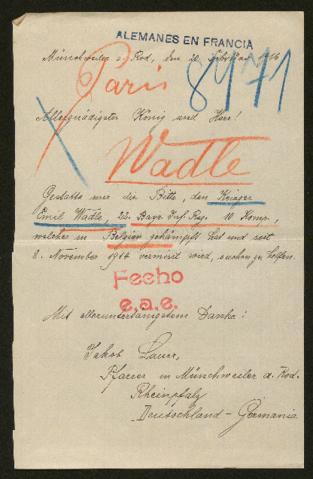 ALEMANES EN FRANCIA
Münchweiler a. Rod, den 20. Februar 1916
Paris
Allergnädigster König und Herr!
Wadle
Gestatte mir die Bitte, den Krieger
Emil Wadle, 23. Bayr. Inf. Reg. 10 Komp.,
welcher in Belgien gekämpft hat und seit
8. November 1914 vermisst wird, suchen zu helfen.
Fecho
e.a.e.
Mit alleruntertänigstem Danke!
Jakob Lauer,
Pfarrer in Münchweiler a. Rod.
Rheinpfalz
Deutschland - Germania